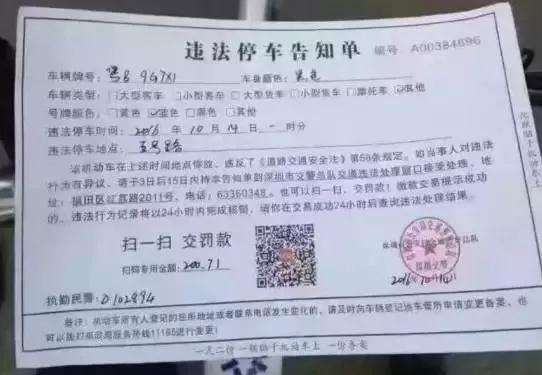 违法停车告知单 编号 A00384696
车辆牌号：粤B 9G7X1 车身颜色：黑色
车辆类型：□大型客车 □小型客车 □大型货车 □小型货车 □摩托车 ☑其他
号牌颜色：□黄色 ☑蓝色 □黑色 □其他
违法停车时间：2016 年 10 月 14 日 一 时分
违法停车地点：
该机动车在上述时间地点停放，违反了《道路交通安全法》第56条规定。如当事人对违法
行为有异议，请于3日后15日内持本告知单到深圳市交警总队交通违法处理窗口接受处理，地
址：福田区红荔路2011号，电话：63360348。也可以扫一扫，交罚款！缴款交易提示成功
的，违法行为记录将以24小时内完成核销，请你在交易成功24小时后查询违法处理结果。
扫一扫 交罚款
扫码专用金额：200.71
执勤民警：
2016年10月
备注：机动车所有人登记的住所地址或者联系电话发生变化的，请及时向车辆登记地车管所申请变更备案，也
可以拨打邮政局服务热线11185进行变更！
一式二份 一联贴于机动车上 一份备案